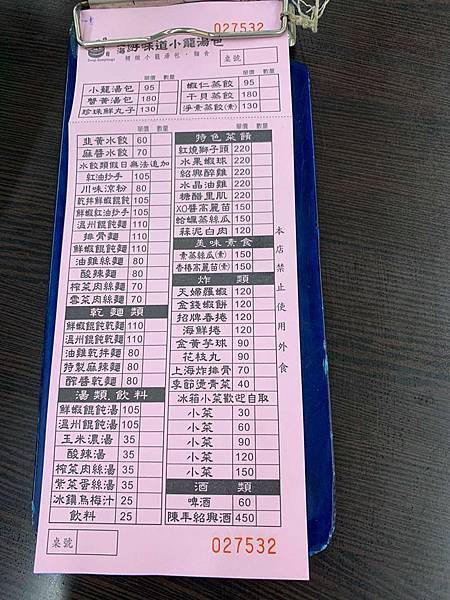 027532
上海 好味道小龍湯包
Soup dumplings
精緻小龍湯包．麵食
桌號
單價 數量
小龍湯包 95
蟹黃湯包 180
珍珠鮮丸子 130
單價 數量
蝦仁蒸餃 95
干貝蒸餃 180
淨素蒸餃(素) 130
單價 數量
韭黃水餃 60
麻醬水餃 70
水餃類假日無法追加
紅油抄手 105
川味涼粉 80
乾拌鮮蝦餛飩 105
鮮蝦紅油抄手 105
溫州餛飩麵 110
排骨麵 110
鮮蝦餛飩麵 110
油雞絲麵 80
酸辣麵 80
榨菜肉絲麵 70
雪菜肉絲麵 70
乾麵類
鮮蝦餛飩乾麵 110
溫州餛飩乾麵 110
油雞乾拌麵 80
特製麻辣麵 80
酢醬乾麵 80
湯類.飲料
鮮蝦餛飩湯 105
溫州餛飩湯 105
玉米濃湯 35
酸辣湯 35
榨菜肉絲湯 35
紫菜蛋絲湯 35
冰鎮烏梅汁 25
飲料 25
單價 數量
特色菜餚
紅燒獅子頭 220
水果蝦球 220
紹興醉雞 220
水晶油雞 220
糖醋里肌 220
XO醬高麗苗 150
蛤蠣蒸絲瓜 150
蒜泥白肉 120
美味素食
素蒸絲瓜(素) 150
香椿高麗苗(素) 150
炸類
天婦羅蝦 120
金錢蝦餅 120
招牌春捲 120
海鮮捲 120
金黃芋球 90
花枝丸 90
上海炸排骨 70
季節燙青菜 40
冰箱小菜歡迎自取
小菜 30
小菜 60
小菜 90
小菜 120
小菜 150
酒類
啤酒 60
陳年紹興酒 450
本店禁止使用外食
桌號
027532